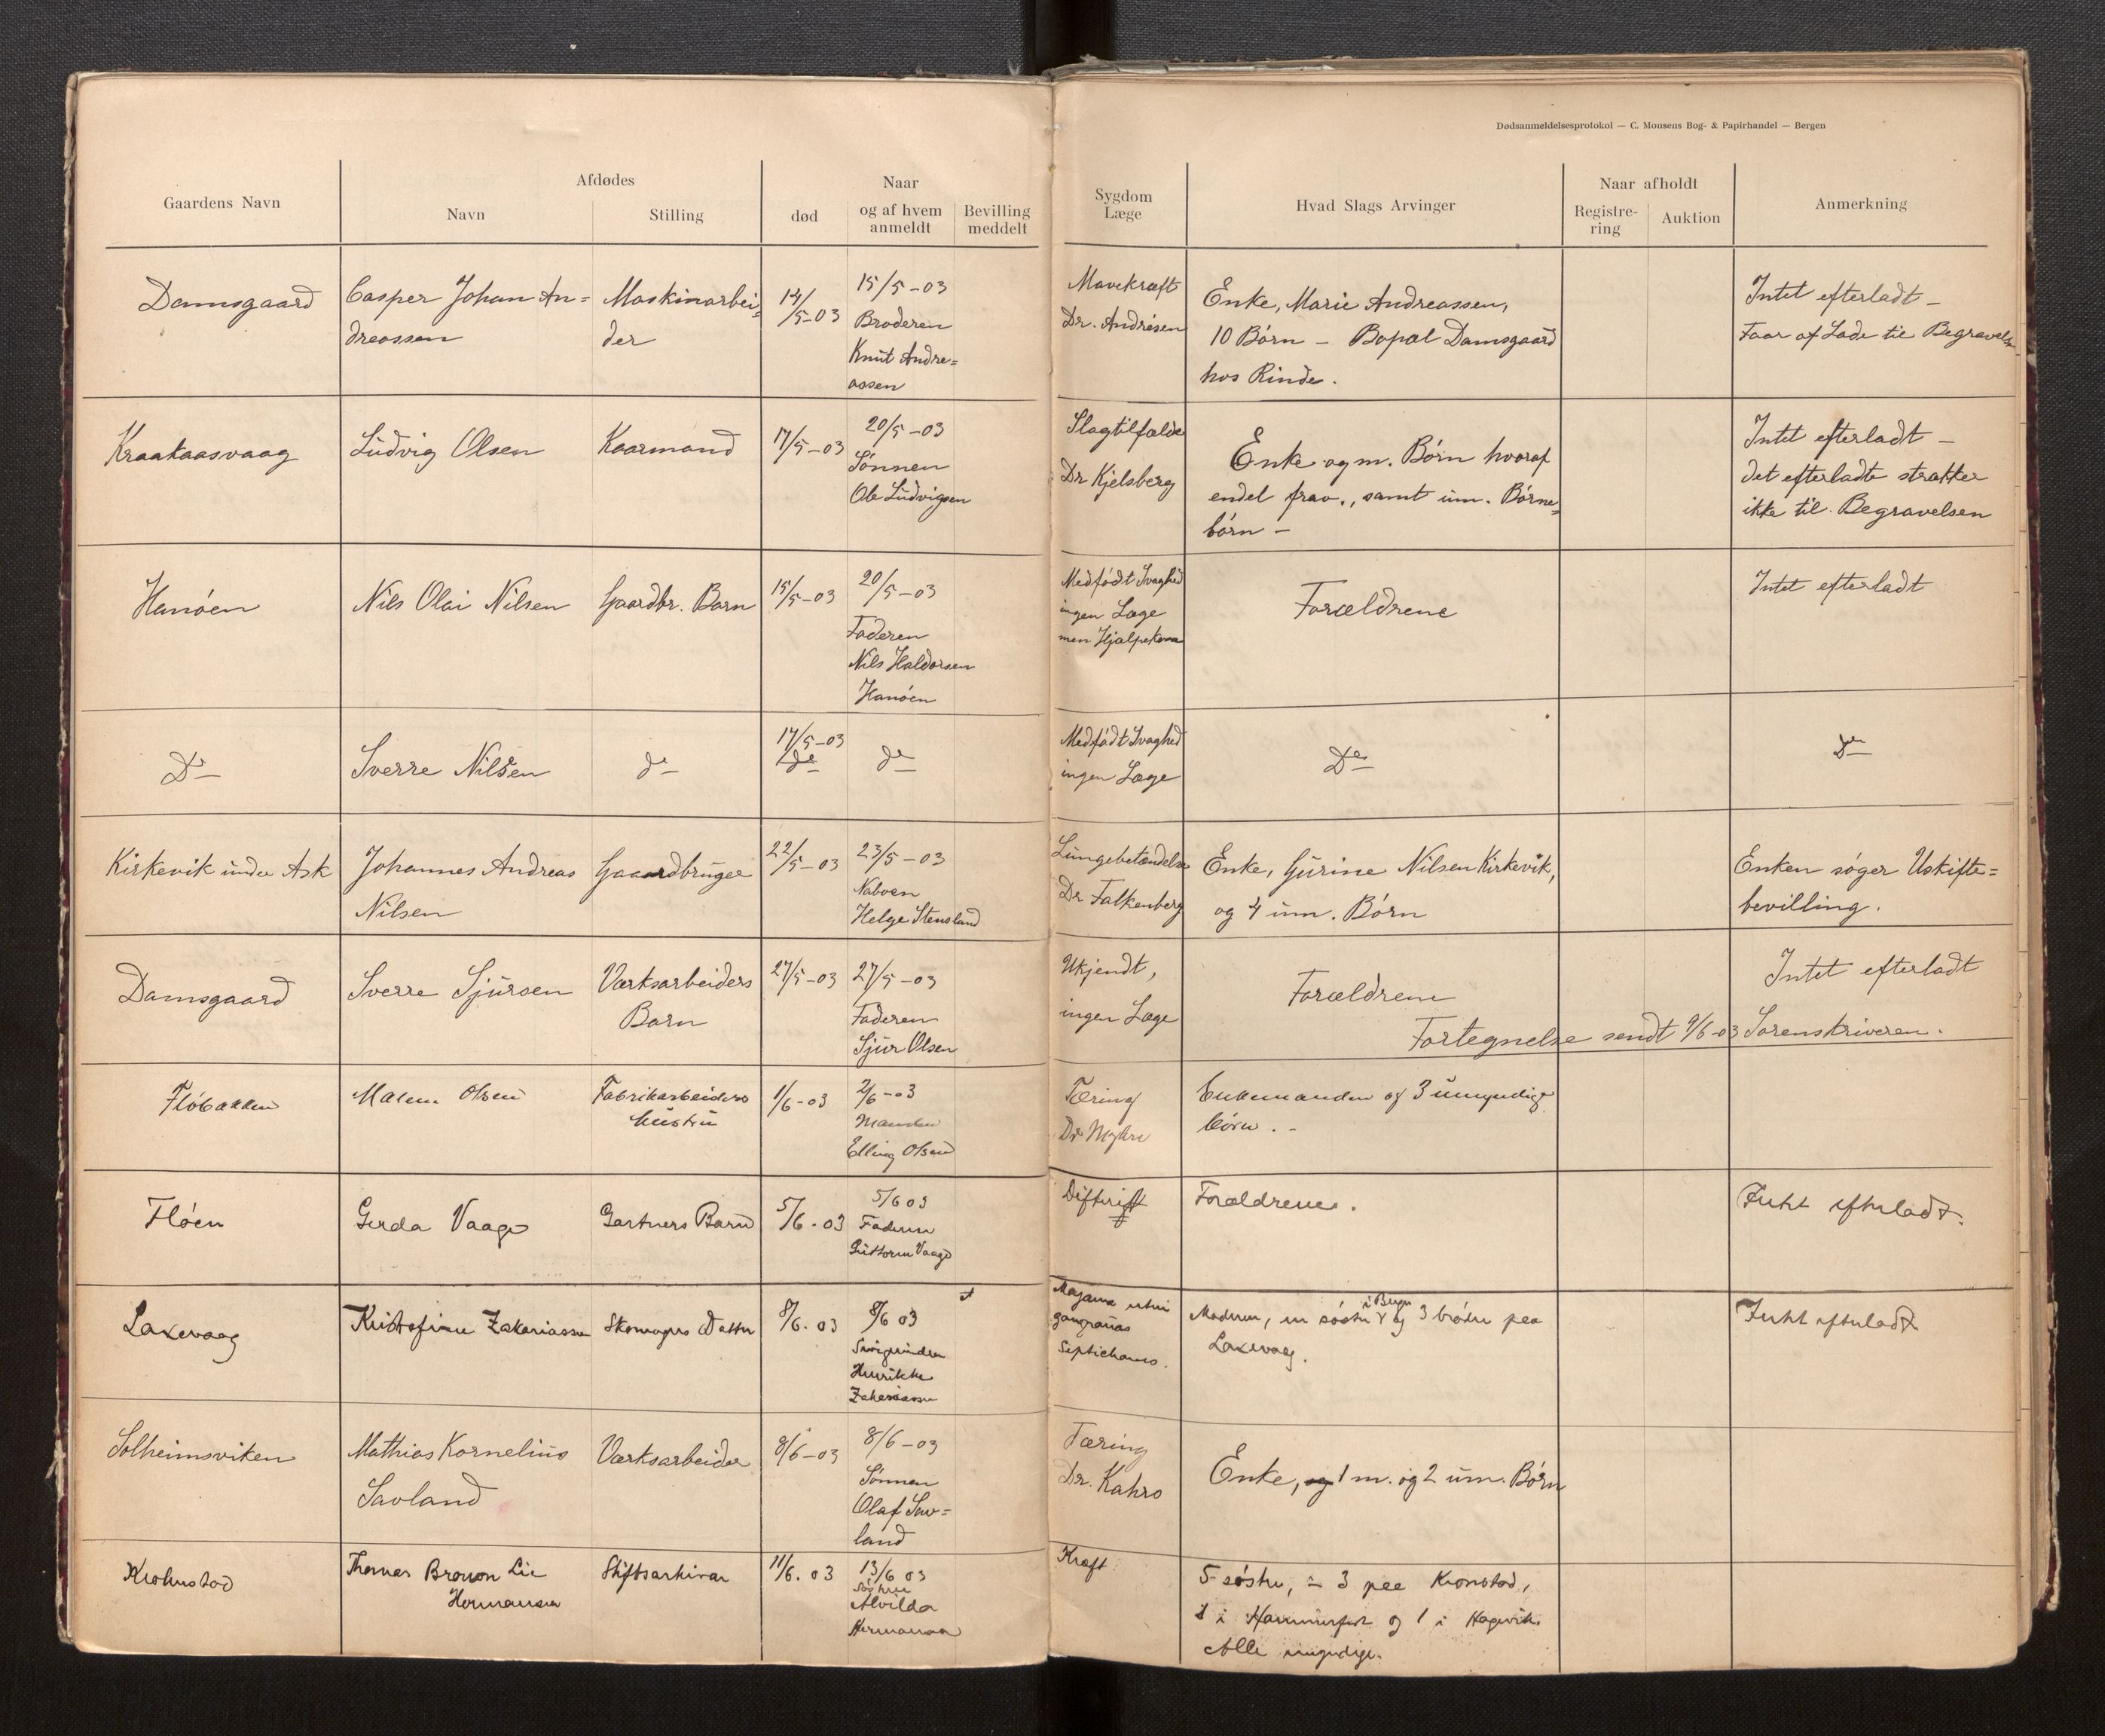 Dødsanmeldelsesprotokol — C. Monsens Bog- & Papirhandel — Bergen
Gaardens Navn
Afdødes
Navn
Stilling
død
Naar
og af hvem
anmeldt
Bevilling
meddelt
Sygdom
Læge
Hvad Slags Arvinger
Naar afholdt
Registre-
ring
Auktion
Anmerkning
Damsgaard
Casper Johan An=
dreassen
Maskinarbei=
der
14/5-03
15/5-03
Broderen
Knut Andre=
assen
Mavekræft
Dr. Andresen
Enke, Marie Andreassen,
10 Børn - Bopæl Damsgaard
hos Rinde.
Intet efterladt -
Faar af Lade til Begravelse
Kraakaasvaag
Ludvig Olsen
Kaarmand
17/5-03
20/5-03
Sønnen
Ole Ludvigsen
Slagtilfælde
Dr Kjelsberg
Enke og m. Børn hvoraf
endel frav., samt um. Børne=
børn -
Intet efterladt -
det efterladte strækker
ikke til Begravelsen
Hanøen
Nils Olai Nilsen
Gaardbr. Barn
15/5-03
20/5-03
Faderen
Nils Haldorsen
Hanøen
Medfødt Svaghed
ingen Læge
men Hjælpekona
Forældrene
Intet efterladt
Do
Sverre Nilsen
do
17/5-03
do
do
Medfødt Svaghed
ingen Læge
Do
Do
Kirkevik under Ask
Johannes Andreas
Nilsen
Gaardbruger
22/5-03
23/5-03
Naboen
Helge Stensland
Lungebetændelse
Dr Falkenberg
Enke, Gurine Nilsen Kirkevik,
og 4 um. Børn
Enken søger Uskifte=
bevilling.
Damsgaard
Sverre Sjursen
Værksarbeiders
Barn
27/5-03
27/5-03
Faderen
Sjur Olsen
Ukjendt,
ingen Læge
Forældrene
Intet efterladt
Fortegnelse sendt 9/6-03 Sorenskriveren.
Fløbakken
Malene Olsen
Fabrikarbeiders
hustru
1/6-03
2/6-03
Manden
Elling Olsen
Tæring
Dr Myhre
Enkemanden og 3 umyndige
børn . -
Fløen
Gerda Vaage
Gartners Barn
5/6.03
5/6 03
Faderen
Guttorm Vaage
Difterit
Forældrene.
Intet efterladt.
Laxevaag
Kristofine Zakariassen
Skomagers Datter
8/6.03
8/6 03
Svigerinden
Henrikke
Zakariassen
Septichæmo.
Moderen, en søster i Bergen og 3 brødre paa
Laxevaag.
Intet efterladt
Solheimsviken
Mathias Kornelius
Savland
Værksarbeider
8/6-03
8/6-03
Sønnen
Olaf Sav=
land
Tæring
Dr. Kahrs
Enke, og 1 m. og 2 um. Børn
Kronstad
Thomas Brown Lie
Hermansen
Stiftsarkivar
11/6.03
13/6 03
Søsteren
Alvilda
Hermansen
Kræft
5 søstre, - 3 paa Kronstad,
1 i Hammerfest og 1 i Hagevik.
Alle myndige.